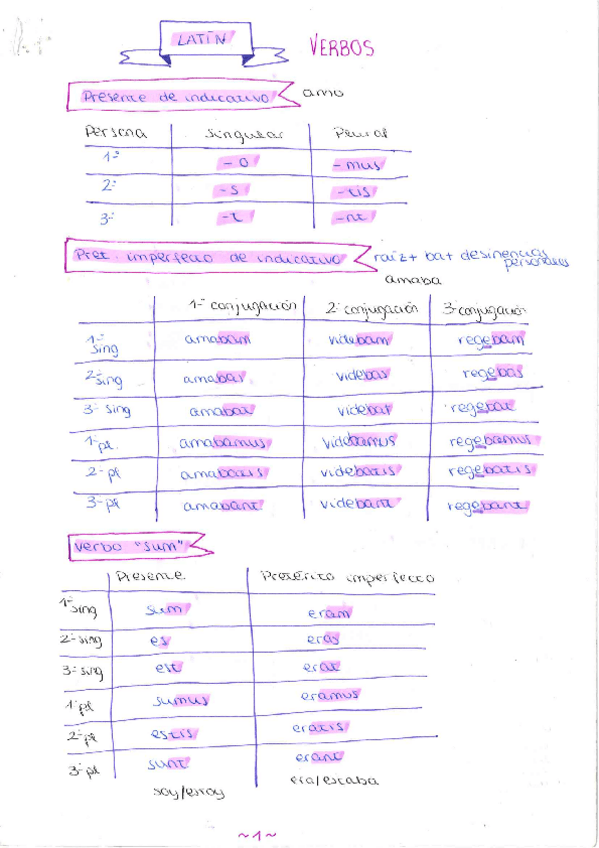 LATÍN VERBOS
Presente de indicativo amo
Persona Singular Plural
1ª -o -mus
2ª -s -tis
3ª -t -nt
Pret. imperfecto de indicativo raíz + ba + desinencias personales
amaba
1ª conjugación 2ª conjugación 3ª conjugación
1ª sing amabam videbam regebam
2ª sing amabas videbas regebas
3ª sing amabat videbat regebat
1ª pl. amabamus videbamus regebamus
2ª pl amabatis videbatis regebatis
3ª pl amabant videbant regebant
Verbo "sum"
Presente Pretérito imperfecto
1ª sing sum eram
2ª sing es eras
3ª sing est erat
1ª pl sumus eramus
2ª pl estis eratis
3ª pl sunt erant
soy/estoy era/estaba
~1~